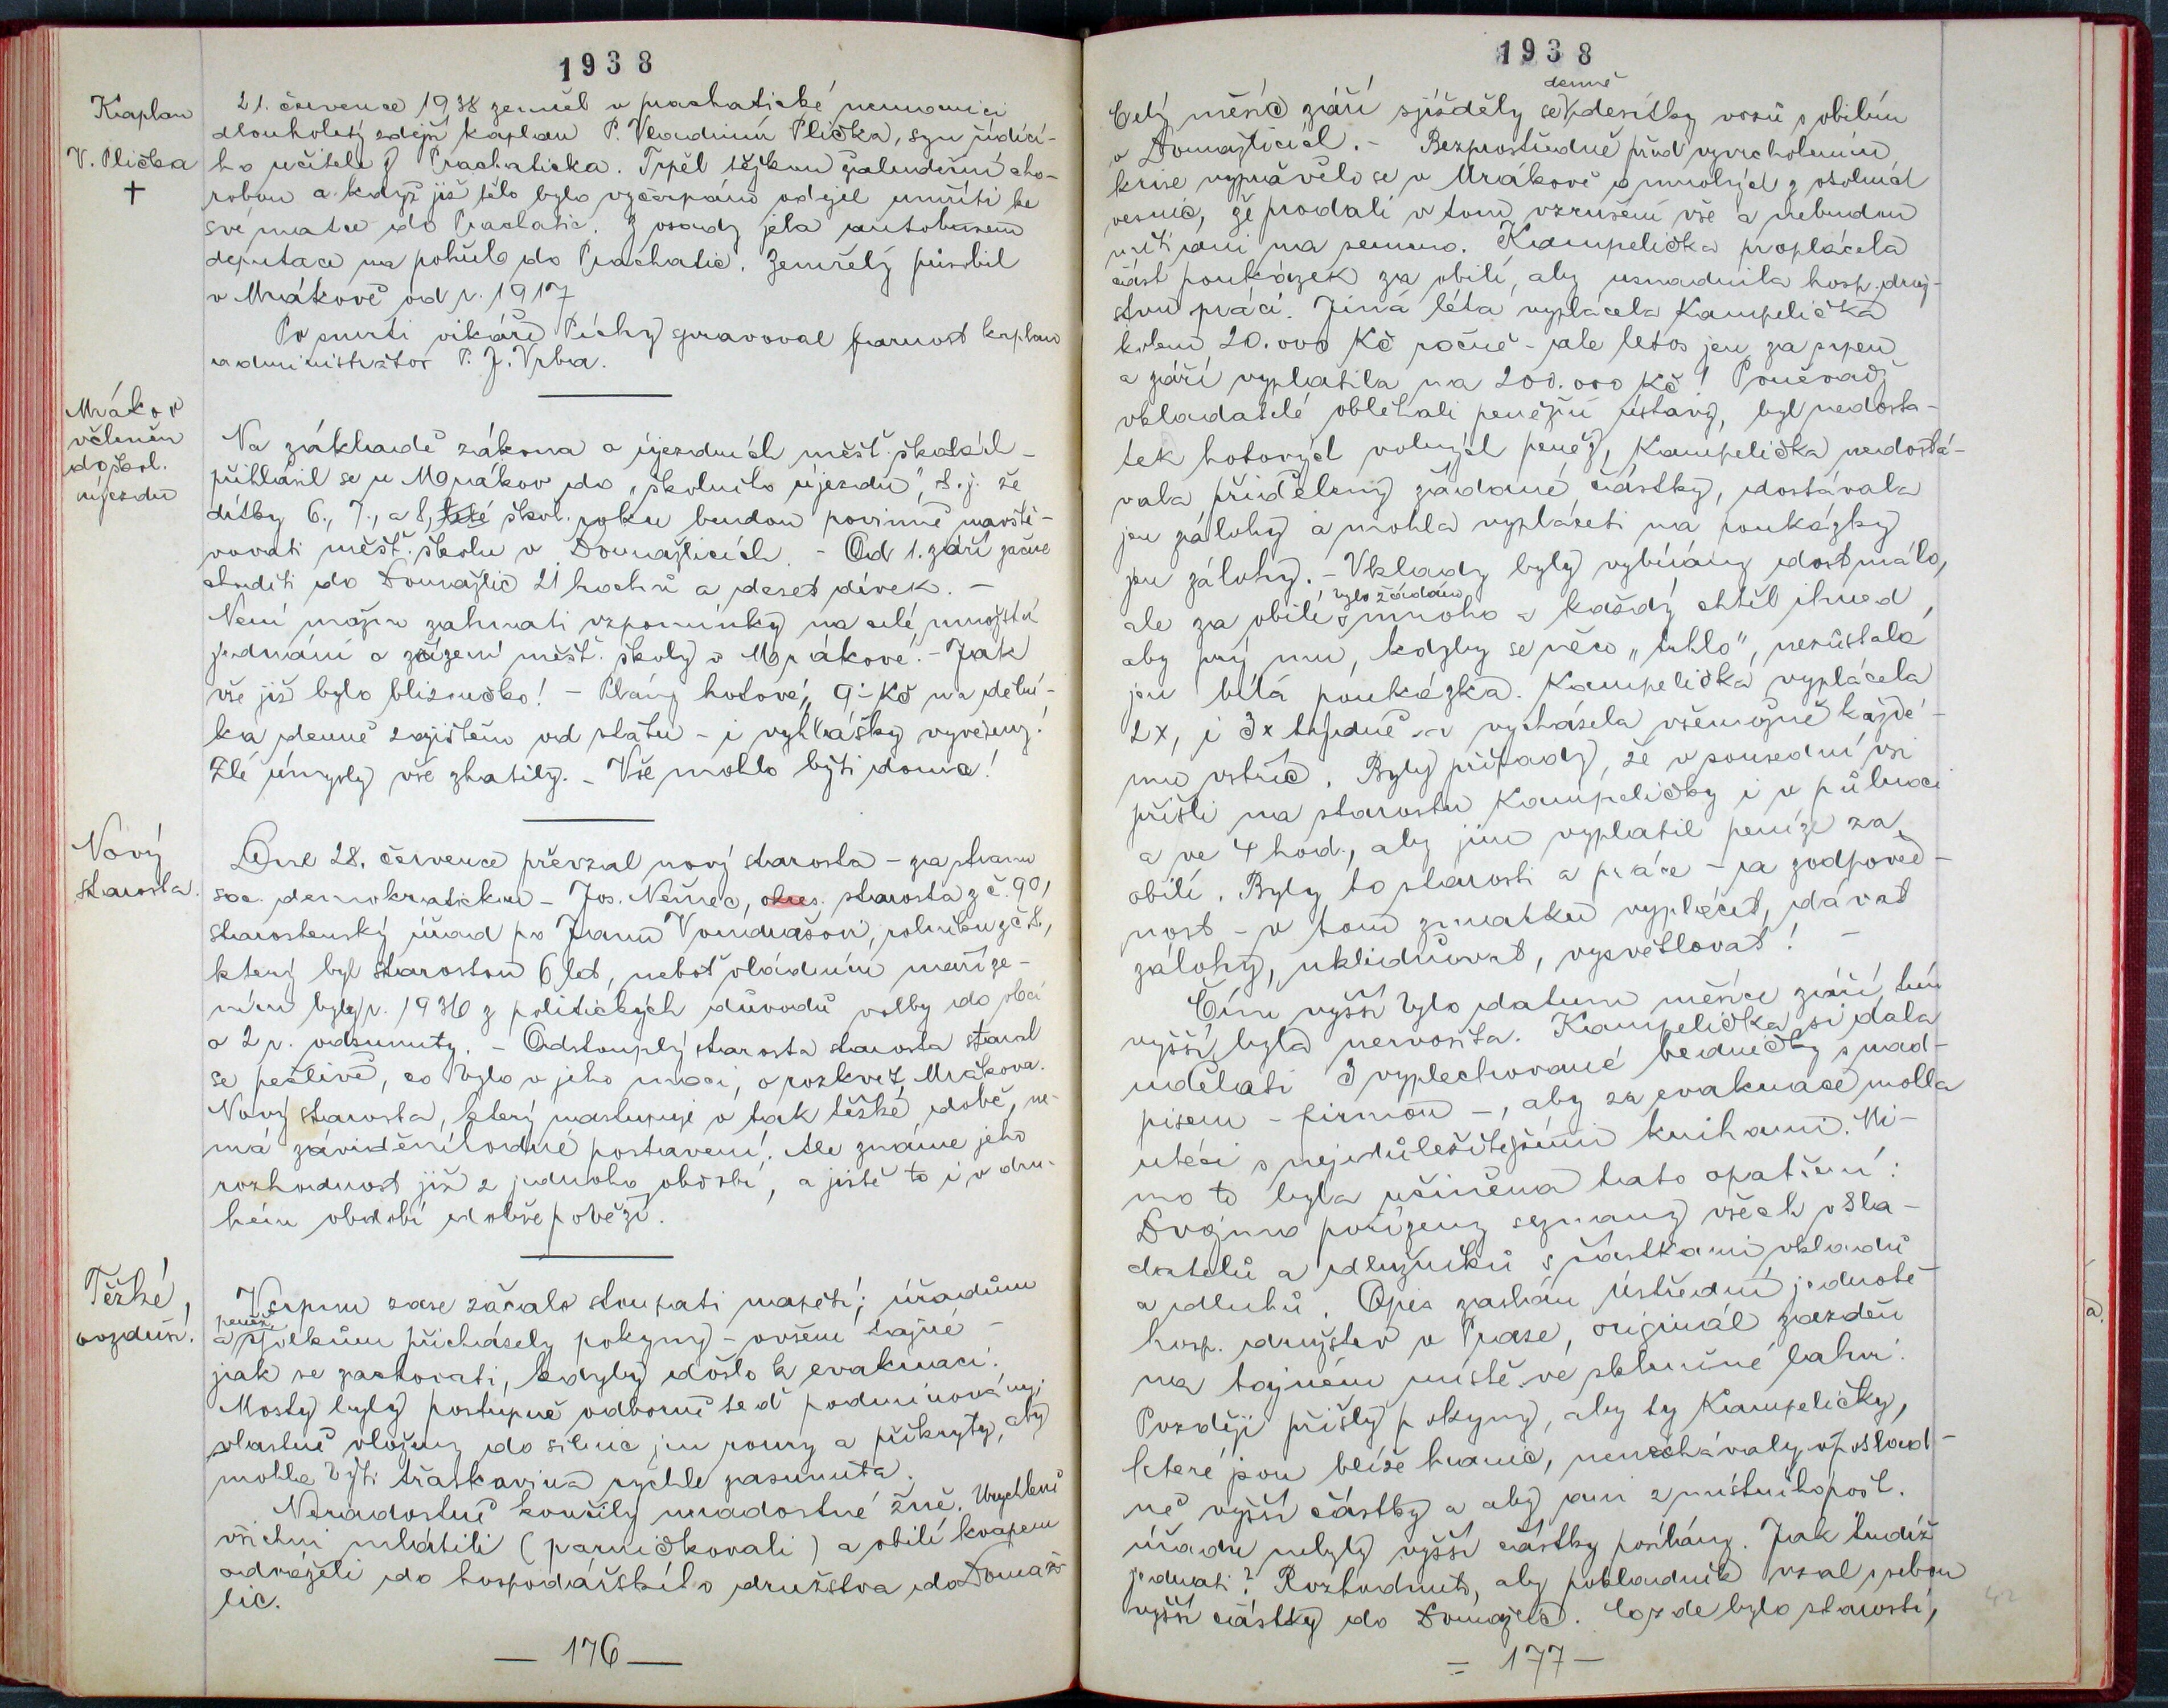 1938
Kaplan
V. Plička
†
21. července 1938 zemřel v prachatické nemocnici
dlouholetý zdejší kaplan P. Vladimír Plička, syn řídící-
ho učitele z Prachaticka. Trpěl těžkou žaludeční cho-
robou a když již tělo bylo vyčerpáno odejel umříti ke
své matce do Prachatic. Z osady jela autobusem
deputace na pohřeb do Prachatic. Zemřelý působil
v Mrákově od r. 1917
Po smrti vikáře Píchy spravoval farnost kaplan
administrátor P. J. Vrba.
Mrákov
včleněn
do škol.
újezdu
Na základě zákona o újezdních měšť. školách
přihlásil se u Mrákov do „školního újezdu", t. j. že
dítky 6., 7., a 8, škol. roku budou povinně navště-
vovati měšť. školu v Domažlicích. - Od 1. září začne
choditi do Domažlic 21 hochů a deset dívek. -
Není možno zahnati vzpomínky na celé množství
jednání o zřízení měšť. školy v Mrákově. - Jak
vše již bylo blizoučko! - Plány hotové, 9.- Kč na dělní-
ka denně zajištěno od státu - i vyhlášky vyvěšeny!
Zlé úmysly vše zhatily. - Vše mohlo býti doma!
Nový
starosta.
Dne 28. července převzal nový starosta - za stranu
soc. demokratickou - Jos. Němec, okres. starosta z č. 90,
starostenský úřad po Janu Vondrašovi, rolníku z č. 8,
který byl starostou 6 let, neboť vládním naříze-
ním byly r. 1936 z politických důvodů volby do obcí
o 2 r. odsunuty. - Odstouplý starosta starosta staral
se pečlivě, co bylo v jeho moci, o rozkvět Mrákova.
Nový starosta, který nastupuje v tak těžké době, ne-
má záviděníhodné postavení. Ale známe jeho
rozhodnost již z jednoho období, a jistě to i v dru-
hém období dobře poběží.
Těžké,
ovzduší.
V srpnu zase začalo stoupati napětí; úřadům
peněž.
a spolkům přicházely pokyny - ovšem tajné -
jak se zachovati, kdyby došlo k evakuaci.
Mosty byly postupně odborně teď podminovány;
vlastně vloženy do silnic jen roury a přikryty, aby
mohla býti třaskavina rychle zasunuta.
Neradostně končily neradostné žně. Urychleně
všichni mlátili (parničkovali) a obilí kvapem
odváželi do hospodářského družstva do Domaž-
lic.
- 176 -
1938
denně
Celý měsíc září sjížděly se desítky vozů s obilím
v Domažlicích. - Bezprostředně před vyvrcholením
krise vyprávělo se v Mrákově o mnohých z okolních
vesnic, že prodali v tom vzrušení vše a nebudou
míti ani na semeno. Kampelička proplácela
část poukázek za obilí, aby usnadnila hosp. druž-
stvu práci. Jiná léta vyplácela Kampelička
kolem 20.000 Kč ročně - ale letos jen za srpen
a září vyplatila na 200.000 Kč! Poněvadž
vkladatelé obléhali peněžní ústavy, byl nedosta-
tek hotových volných peněz, Kampelička nedostá-
vala přiděleny žádané částky, dostávala
jen zálohy a mohla vypláceti na poukázky
jen zálohy. - Vklady byly vybírány dost málo,
bylo žádáno
ale za obilí mnoho a každý chtěl ihned,
aby prý mu, kdyby se něco „trhlo", nezůstala
jen bílá poukázka. Kampelička vyplácela
2x, i 3x týdně a vycházela všemožně každé-
mu vstříc. Byly případy, že v sousední vsi
přišli na starostu Kampeličky i v půlnoci
a ve 4 hod., aby jim vyplatil peníze za
obilí. Byly to starosti a práce - a zodpověd-
nost - v tom zmatku vyplácet, dávat
zálohy, uklidňovat, vysvětlovat! -
Čím vyšší bylo datum měsíce září, tím
vyšší byla nervosita. Kampelička si dala
udělati 3 vyplechované bedničky s nad-
pisem - firmou -, aby za evakuace mohla
utéci s nejdůležitějšími knihami. Mi-
mo to byla učiněna tato opatření:
Dvojmo pořízeny seznamy všech vkla-
datelů a dlužníků s částkami vkladů
a dluhů. Opis zaslán Ústřední jednotě
hosp. družstev v Praze, originál zazděn
na tajném místě ve skleněné lahvi.
Později přišly pokyny, aby ty Kampeličky,
které jsou blíže hranic, nenechávaly v poklad-
ně vyšší částky a aby ani z místního pošt.
úřadu nebyly vyšší částky posílány. Jak tudíž
jednati? Rozhodnuto, aby pokladník vzal s sebou
vyšší částky do Domažlic. Co zde bylo starosti,
- 177 -
42